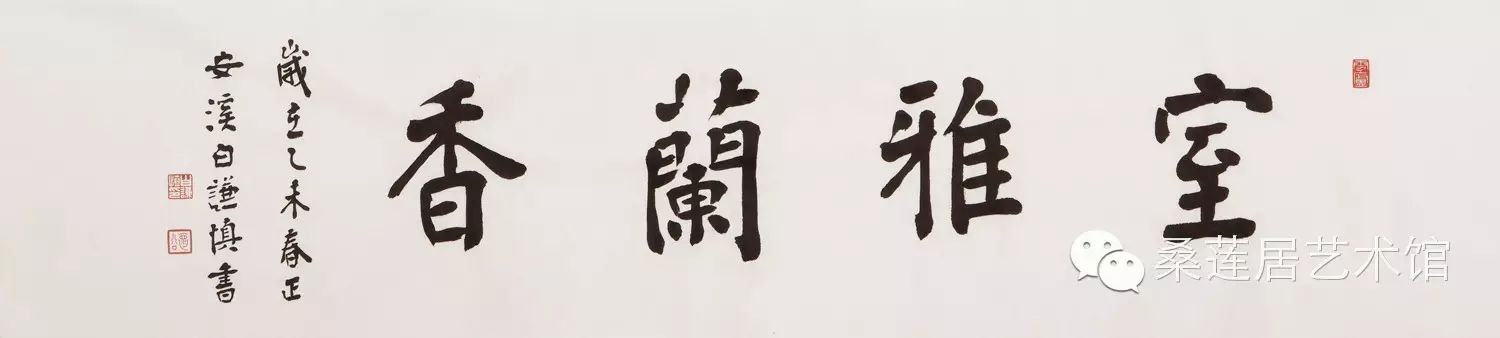 室雅蘭香
歲在乙未春正
安溪白謙慎書
桑莲居艺术馆